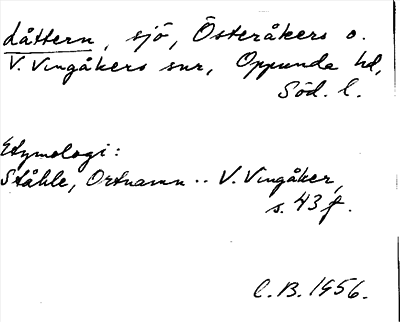 Låttern, sjö, Österåkers o.
V. Vingåkers snr, Oppunda hd,
Söd. l.
Etymologi:
Ståhle, Ortnamn .. V. Vingåker,
s. 43 f.
C.B. 1956.